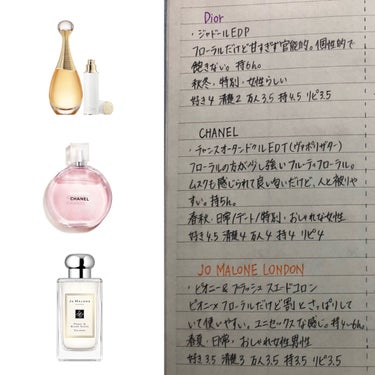 CHANEL
JO MALONE
LONDON
Dior
・ジャドールEDP
フローラルだけど甘すぎず官能的。個性的で
飽きない。持6h。
秋冬・特別・女性らしい
好き4 清楚2 万人3.5 持4.5 リピ3.5
CHANEL
・チャンスオータンドゥルEDT(ヴァポリザター)
フローラルの方が少し強いフルーティフローラル。
ムスクも感じられて良い匂いだけど、人と被りや
すい。持5h。
春秋・日常/デート/特別・おしゃれな女性
好き4.5 清楚4 万人4 持4 リピ4
JO MALONE LONDON
・ピオニー&ブラッシュスエードコロン
ピオニー×フローラルだけど割とさっぱりして
いて使いやすい。ユニセックスな感じ。持4~6h。
春夏・日常・おしゃれな女性男性
好き3.5 清楚3 万人3.5 持3.5 リピ3.5